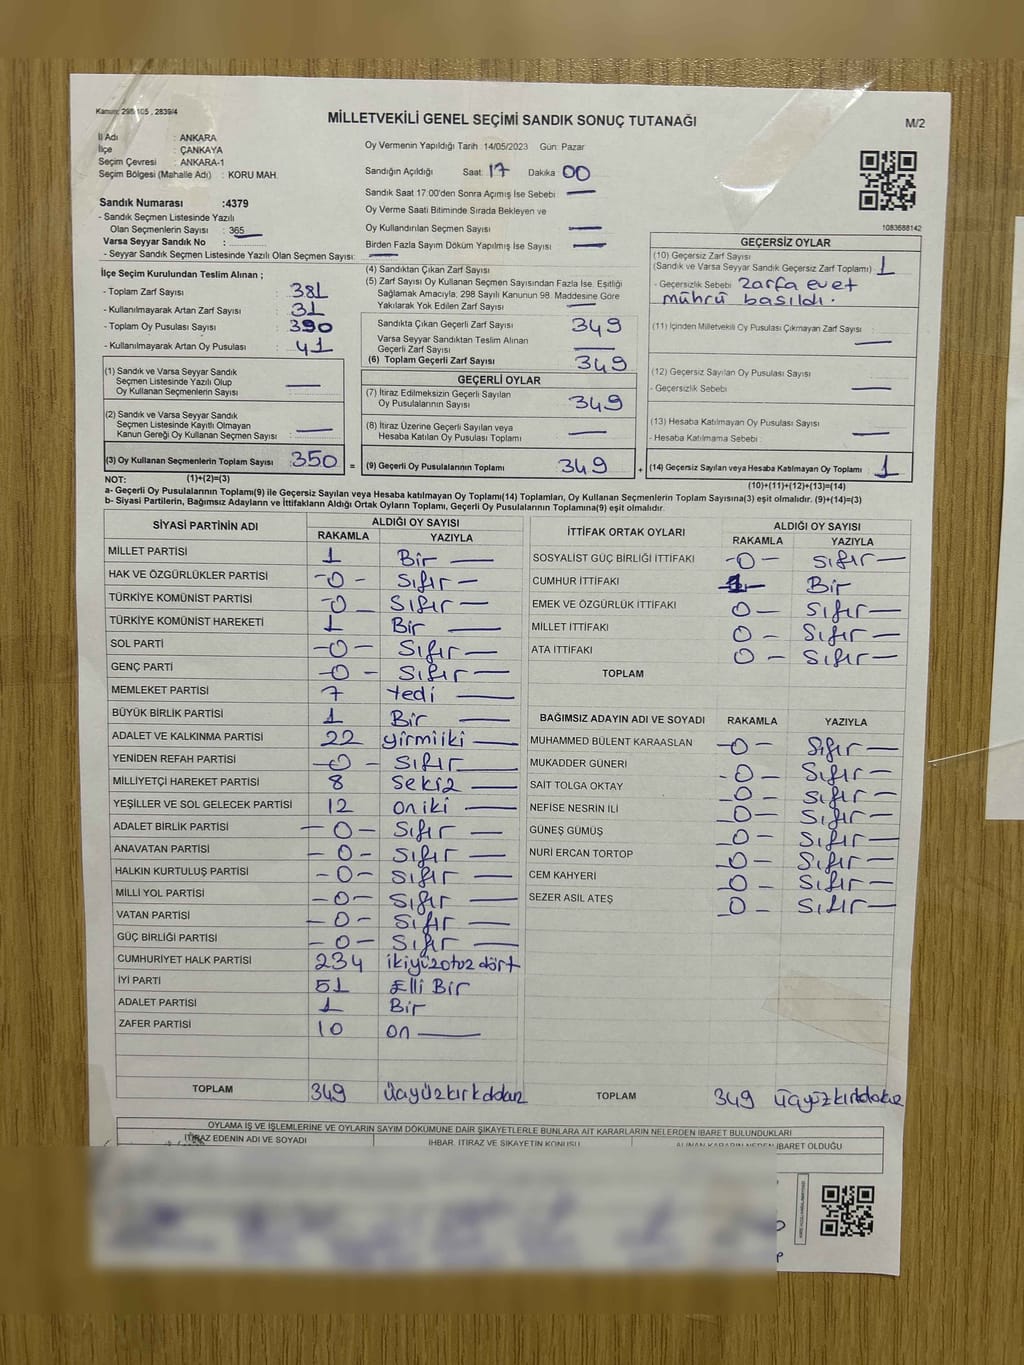 Kanun: 298/105 , 2839/4
MİLLETVEKİLİ GENEL SEÇİMİ SANDIK SONUÇ TUTANAĞI
M/2
İl Adı : ANKARA
İlçe : ÇANKAYA
Seçim Çevresi : ANKARA-1
Seçim Bölgesi (Mahalle Adı) : KORU MAH.
Oy Vermenin Yapıldığı Tarih 14/05/2023 Gün: Pazar
Sandığın Açıldığı Saat: 17 Dakika 00
Sandık Saat 17:00'den Sonra Açımış İse Sebebi —
Oy Verme Saati Bitiminde Sırada Bekleyen ve
Oy Kullandırılan Seçmen Sayısı —
Birden Fazla Sayım Döküm Yapılmış İse Sayısı —
Sandık Numarası :4379
- Sandık Seçmen Listesinde Yazılı
Olan Seçmenlerin Sayısı : 365
Varsa Seyyar Sandık No :
- Seyyar Sandık Seçmen Listesinde Yazılı Olan Seçmen Sayısı: —
1083688142
İlçe Seçim Kurulundan Teslim Alınan ;
- Toplam Zarf Sayısı : 381
- Kullanılmayarak Artan Zarf Sayısı : 31
- Toplam Oy Pusulası Sayısı : 390
- Kullanılmayarak Artan Oy Pusulası : 41
(1) Sandık ve Varsa Seyyar Sandık
Seçmen Listesinde Yazılı Olup
Oy Kullanan Seçmenlerin Sayısı : —
(2) Sandık ve Varsa Seyyar Sandık
Seçmen Listesinde Kayıtlı Olmayan
Kanun Gereği Oy Kullanan Seçmen Sayısı : —
(3) Oy Kullanan Seçmenlerin Toplam Sayısı : 350
(1)+(2)=(3)
(4) Sandıktan Çıkan Zarf Sayısı
(5) Zarf Sayısı Oy Kullanan Seçmen Sayısından Fazla İse, Eşitliği
Sağlamak Amacıyla, 298 Sayılı Kanunun 98. Maddesine Göre
Yakılarak Yok Edilen Zarf Sayısı : —
Sandıkta Çıkan Geçerli Zarf Sayısı 349
Varsa Seyyar Sandıktan Teslim Alınan
Geçerli Zarf Sayısı —
(6) Toplam Geçerli Zarf Sayısı 349
GEÇERLİ OYLAR
(7) İtiraz Edilmeksizin Geçerli Sayılan
Oy Pusulalarının Sayısı 349
(8) İtiraz Üzerine Geçerli Sayılan veya
Hesaba Katılan Oy Pusulası Toplamı —
= (9) Geçerli Oy Pusulalarının Toplamı 349 +
GEÇERSİZ OYLAR
(10) Geçersiz Zarf Sayısı
(Sandık ve Varsa Seyyar Sandık Geçersiz Zarf Toplamı) 1
- Geçersizlik Sebebi : zarfa evet
mührü basıldı.
(11) İçinden Milletvekili Oy Pusulası Çıkmayan Zarf Sayısı : —
(12) Geçersiz Sayılan Oy Pusulası Sayısı :
- Geçersizlik Sebebi : —
(13) Hesaba Katılmayan Oy Pusulası Sayısı :
- Hesaba Katılmama Sebebi : —
(14) Geçersiz Sayılan veya Hesaba Katılmayan Oy Toplamı : 1
(10)+(11)+(12)+(13)=(14)
NOT:
a- Geçerli Oy Pusulalarının Toplamı(9) ile Geçersiz Sayılan veya Hesaba katılmayan Oy Toplamı(14) Toplamları, Oy Kullanan Seçmenlerin Toplam Sayısına(3) eşit olmalıdır. (9)+(14)=(3)
b- Siyasi Partilerin, Bağımsız Adayların ve İttifakların Aldığı Ortak Oyların Toplamı, Geçerli Oy Pusulalarının Toplamına(9) eşit olmalıdır.
SİYASİ PARTİNİN ADI ALDIĞI OY SAYISI
RAKAMLA YAZIYLA
MİLLET PARTİSİ 1 Bir —
HAK VE ÖZGÜRLÜKLER PARTİSİ -0- Sıfır —
TÜRKİYE KOMÜNİST PARTİSİ -0- Sıfır —
TÜRKİYE KOMÜNİST HAREKETİ 1 Bir —
SOL PARTİ -0- Sıfır —
GENÇ PARTİ -0- Sıfır —
MEMLEKET PARTİSİ 7 Yedi —
BÜYÜK BİRLİK PARTİSİ 1 Bir —
ADALET VE KALKINMA PARTİSİ 22 yirmiiki —
YENİDEN REFAH PARTİSİ -0- Sıfır —
MİLLİYETÇİ HAREKET PARTİSİ 8 Sekiz —
YEŞİLLER VE SOL GELECEK PARTİSİ 12 oniki —
ADALET BİRLİK PARTİSİ -0- Sıfır —
ANAVATAN PARTİSİ -0- Sıfır —
HALKIN KURTULUŞ PARTİSİ -0- Sıfır —
MİLLİ YOL PARTİSİ -0- Sıfır —
VATAN PARTİSİ -0- Sıfır —
GÜÇ BİRLİĞİ PARTİSİ -0- Sıfır —
CUMHURİYET HALK PARTİSİ 234 ikiyüzotuzdört
İYİ PARTİ 51 Elli Bir
ADALET PARTİSİ 1 Bir
ZAFER PARTİSİ 10 on —
TOPLAM 349
İTTİFAK ORTAK OYLARI ALDIĞI OY SAYISI
RAKAMLA YAZIYLA
SOSYALİST GÜÇ BİRLİĞİ İTTİFAKI -0- Sıfır —
CUMHUR İTTİFAKI 1 Bir
EMEK VE ÖZGÜRLÜK İTTİFAKI 0- Sıfır —
MİLLET İTTİFAKI 0- Sıfır —
ATA İTTİFAKI 0- Sıfır —
TOPLAM
BAĞIMSIZ ADAYIN ADI VE SOYADI RAKAMLA YAZIYLA
MUHAMMED BÜLENT KARAASLAN -0- Sıfır —
MUKADDER GÜNERİ -0- Sıfır —
SAİT TOLGA OKTAY -0- Sıfır —
NEFİSE NESRİN İLİ -0- Sıfır —
GÜNEŞ GÜMÜŞ -0- Sıfır —
NURİ ERCAN TORTOP -0- Sıfır —
CEM KAHYERİ -0- Sıfır —
SEZER ASIL ATEŞ -0- Sıfır —
TOPLAM 349
OYLAMA İŞ VE İŞLEMLERİNE VE OYLARIN SAYIM DÖKÜMÜNE DAİR ŞİKAYETLERLE BUNLARA AİT KARARLARIN NELERDEN İBARET BULUNDUKLARI
İTİRAZ EDENİN ADI VE SOYADI İHBAR, İTİRAZ VE ŞİKAYETİN KONUSU ALINAN KARARIN NEDEN İBARET OLDUĞU